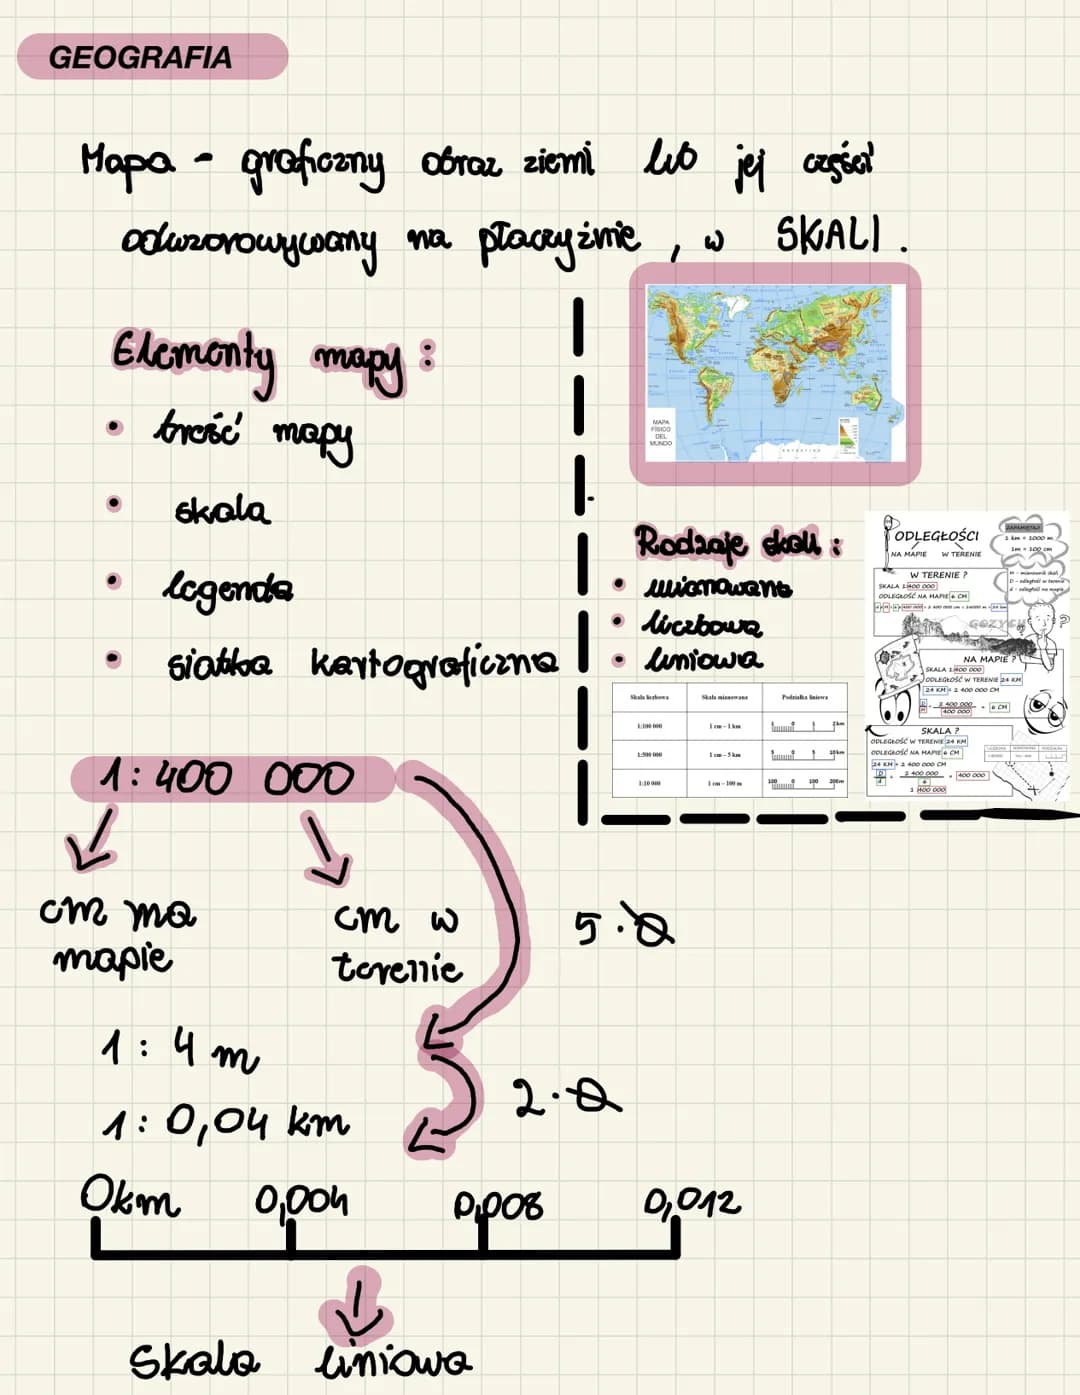 GEOGRAFIA
Mapa - graficzny obraz ziemi lub jej części
odwzorowywany na płaczyźnie , w SKALI .
Elementy mapy :
• treść mapy
• skala
• legenda
• siatka kartograficzna
MAPA
FÍSICO
DEL
MUNDO
Rodzaje skali :
• mianowana
• liczbowa
• liniowa
Skala liczbowa Skala mianowana Podziałka liniowa
1:100 000 1 cm – 1 km 1 0 1 2km
1:500 000 1 cm – 5 km 5 0 5 10km
1:10 000 1 cm – 100 m 100 0 100 200m
ODLEGŁOŚCI
NA MAPIE W TERENIE
ZAPAMIĘTAJ!
1 km = 1000 m
1m = 100 cm
M - mianownik skali
D - odległość w terenie
d - odległość na mapie
W TERENIE ?
SKALA 1:400 000
ODLEGŁOŚĆ NA MAPIE 6 CM
NA MAPIE ?
SKALA 1:400 000
ODLEGŁOŚĆ W TERENIE 24 KM
24 KM = 2 400 000 CM
D/M = 2 400 000 / 400 000 = 6 CM
SKALA ?
ODLEGŁOŚĆ W TERENIE 24 KM
ODLEGŁOŚĆ NA MAPIE 6 CM
24 KM = 2 400 000 CM
D/d = 2 400 000 / 6 = 400 000
1:400 000
1 : 400 000
cm na mapie
cm w terenie
5 · 0
1 : 4 m
2 · 0
1 : 0,04 km
0km 0,004 0,008 0,012
Skala liniowa